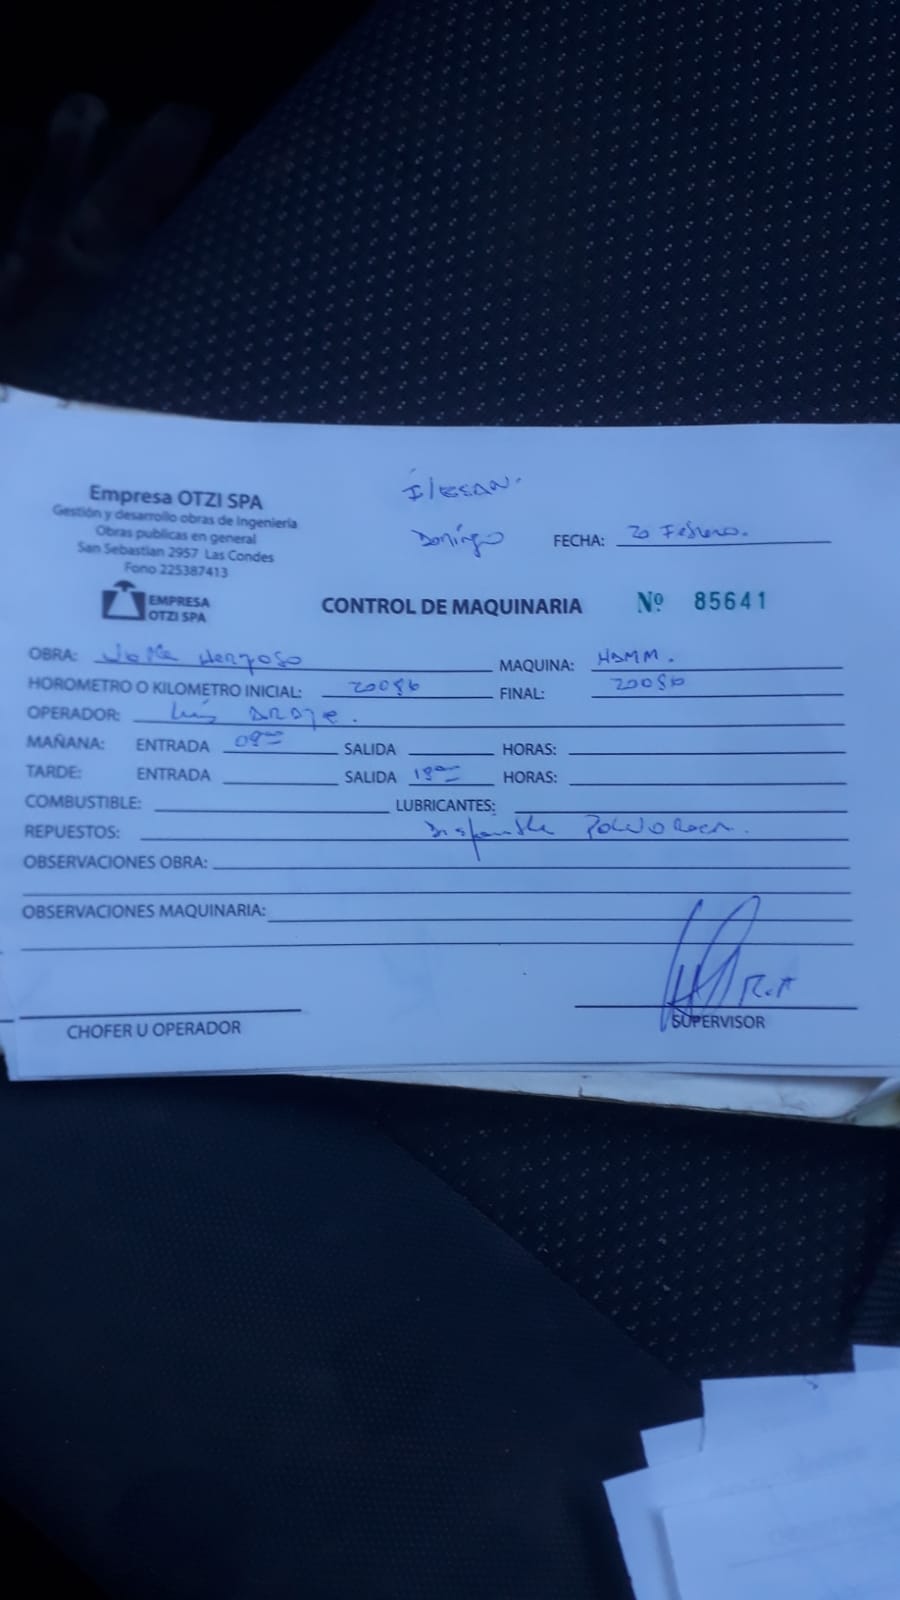 Empresa OTZI SPA
Gestión y desarrollo obras de Ingeniería
Obras publicas en general
San Sebastian 2957 Las Condes
Fono 225387413
EMPRESA
OTZI SPA
Domingo
FECHA: 20 Febrero.
CONTROL DE MAQUINARIA Nº 85641
OBRA: Hermoso MAQUINA: HAMM.
HOROMETRO O KILOMETRO INICIAL: FINAL:
OPERADOR: Luis
MAÑANA: ENTRADA 08 00 SALIDA HORAS:
TARDE: ENTRADA SALIDA HORAS:
COMBUSTIBLE: LUBRICANTES:
REPUESTOS:
OBSERVACIONES OBRA:
OBSERVACIONES MAQUINARIA:
CHOFER U OPERADOR SUPERVISOR